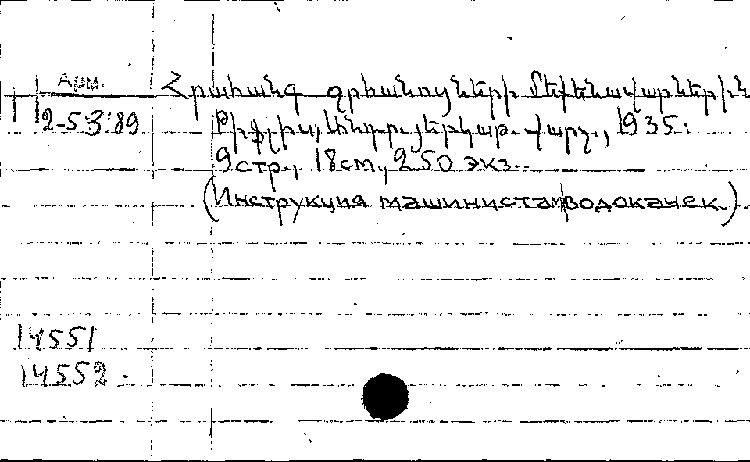 Арм. Հրահանգ ջրհանույների մեքենավարներին
2-53:89 Թիֆլիս, երկաթ. վարչ., 1935:
9 стр., 18 см., 250 экз.
(Инструкция машинистам водокачек.)
14551
14552.